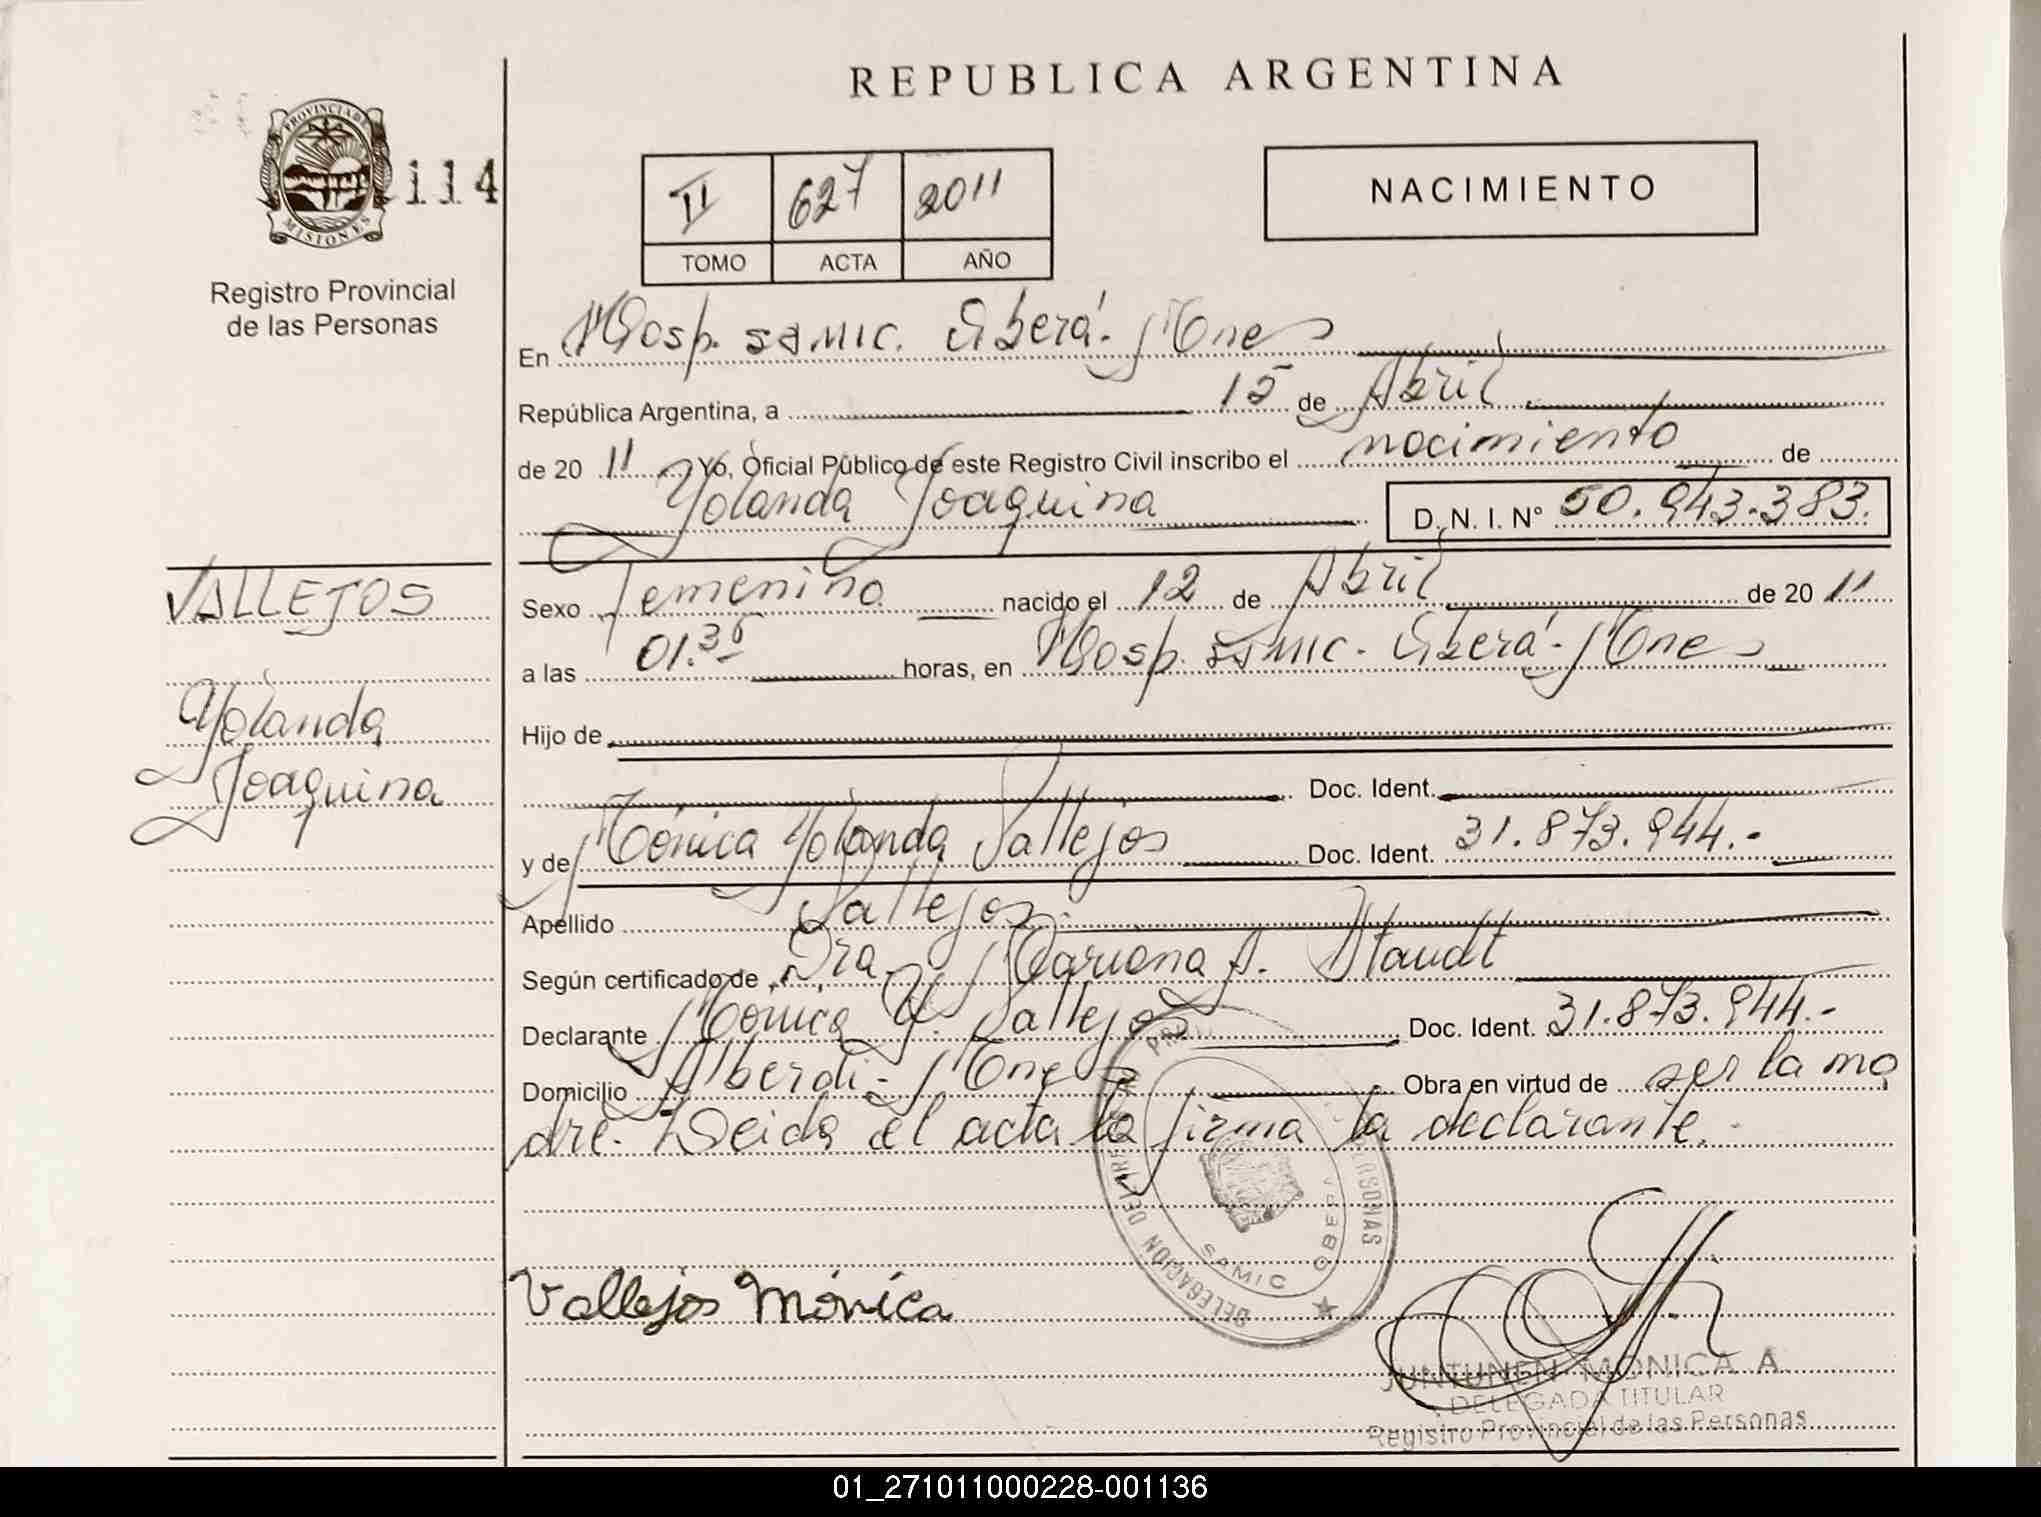 REPUBLICA ARGENTINA
PROVINCIA DE
MISIONES
114
Registro Provincial
de las Personas
II 627 2011
TOMO ACTA AÑO
NACIMIENTO
En Hosp. SAMIC. Oberá. Mnes
República Argentina, a 15 de Abril
de 20 11 Yo, Oficial Público de este Registro Civil inscribo el nacimiento de
Yolanda Joaquina D. N. I. Nº 50.943.383.
VALLEJOS
Yolanda
Joaquina
Sexo Femenino nacido el 12 de Abril de 20 11
a las 01.35 horas, en Hosp. SAMIC. Oberá - Mnes
Hijo de
Doc. Ident.
y de Mónica Yolanda Vallejos Doc. Ident. 31.873.944.-
Apellido Vallejos.
Según certificado de Dra. Mariana A. Staudt
Declarante Mónica Y. Vallejos Doc. Ident. 31.873.944.-
Domicilio Alberdi - Mnes Obra en virtud de ser la ma
dre. Leida el acta la firma la declarante.-
DELEGACION DEL REG PERSONAS
SAMIC OBERA
Vallejos Mónica
JUNTUNEN MONICA A
DELEGADA TITULAR
Registro Provincial de las Personas
01_271011000228-001136